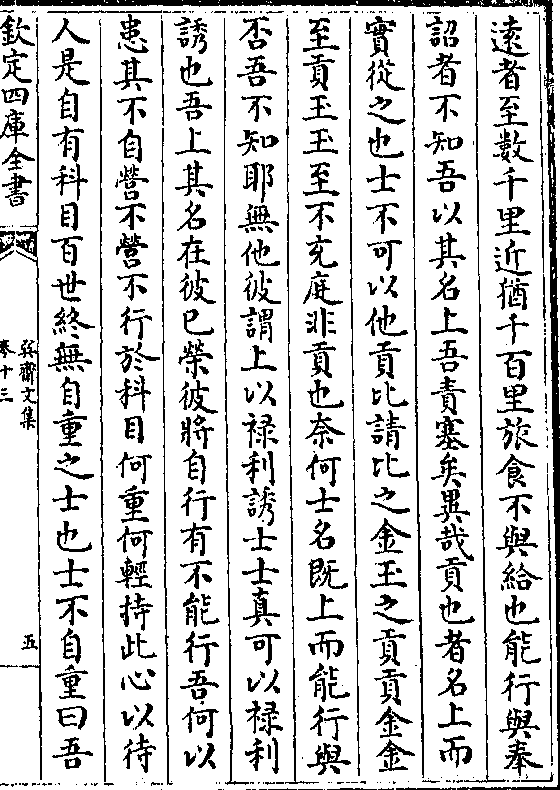 遠者至數千里近猶千百里旅食不與給也能行與奉
詔者不知吾以其名上吾責塞矣異哉貢也者名上而
實從之也士不可以他貢比請比之金玉之貢貢金金
至貢玉玉至不充庭非貢也奈何士名既上而能行與
否吾不知耶無他彼謂上以禄利誘士士真可以禄利
誘也吾上其名在彼已榮彼將自行有不能行吾何以
患其不自營不營不行於科目何重何輕持此心以待
人是自有科目百世終無自重之士也士不自重曰吾
欽定四庫全書
巽齋文集
卷十三
五